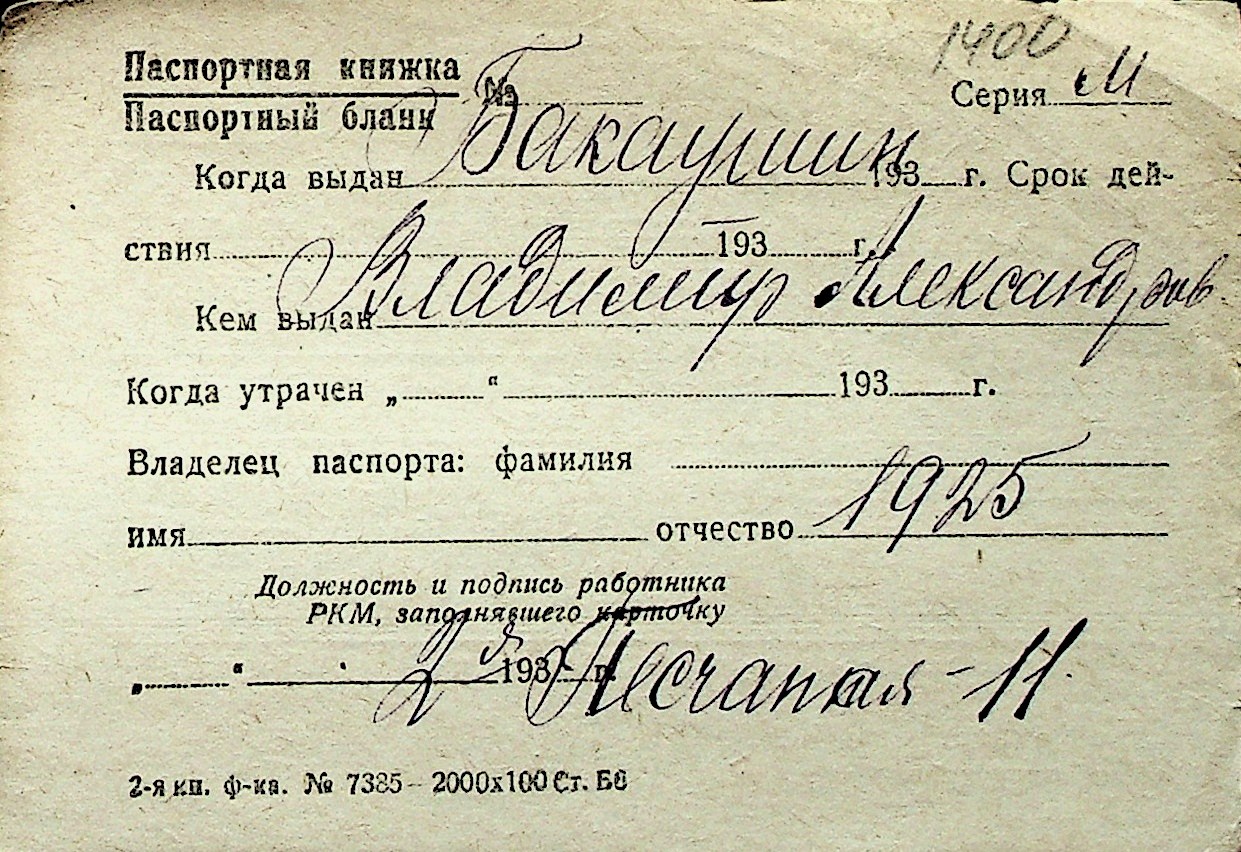 1400
Паспортная книжка
Паспортный бланк № Серия М
Бакаушин
Когда выдан 193 г. Срок дей-
ствия 193 г.
Владимир Александров
Кем выдан
Когда утрачен „ “ 193 г.
Владелец паспорта: фамилия
1925
имя отчество
Должность и подпись работника
РКМ, заполнявшего карточку
„ “ 193 г.
2я Песчаная - 11
2-я кн. ф-ка. № 7385 – 2000х100 Ст. Б6